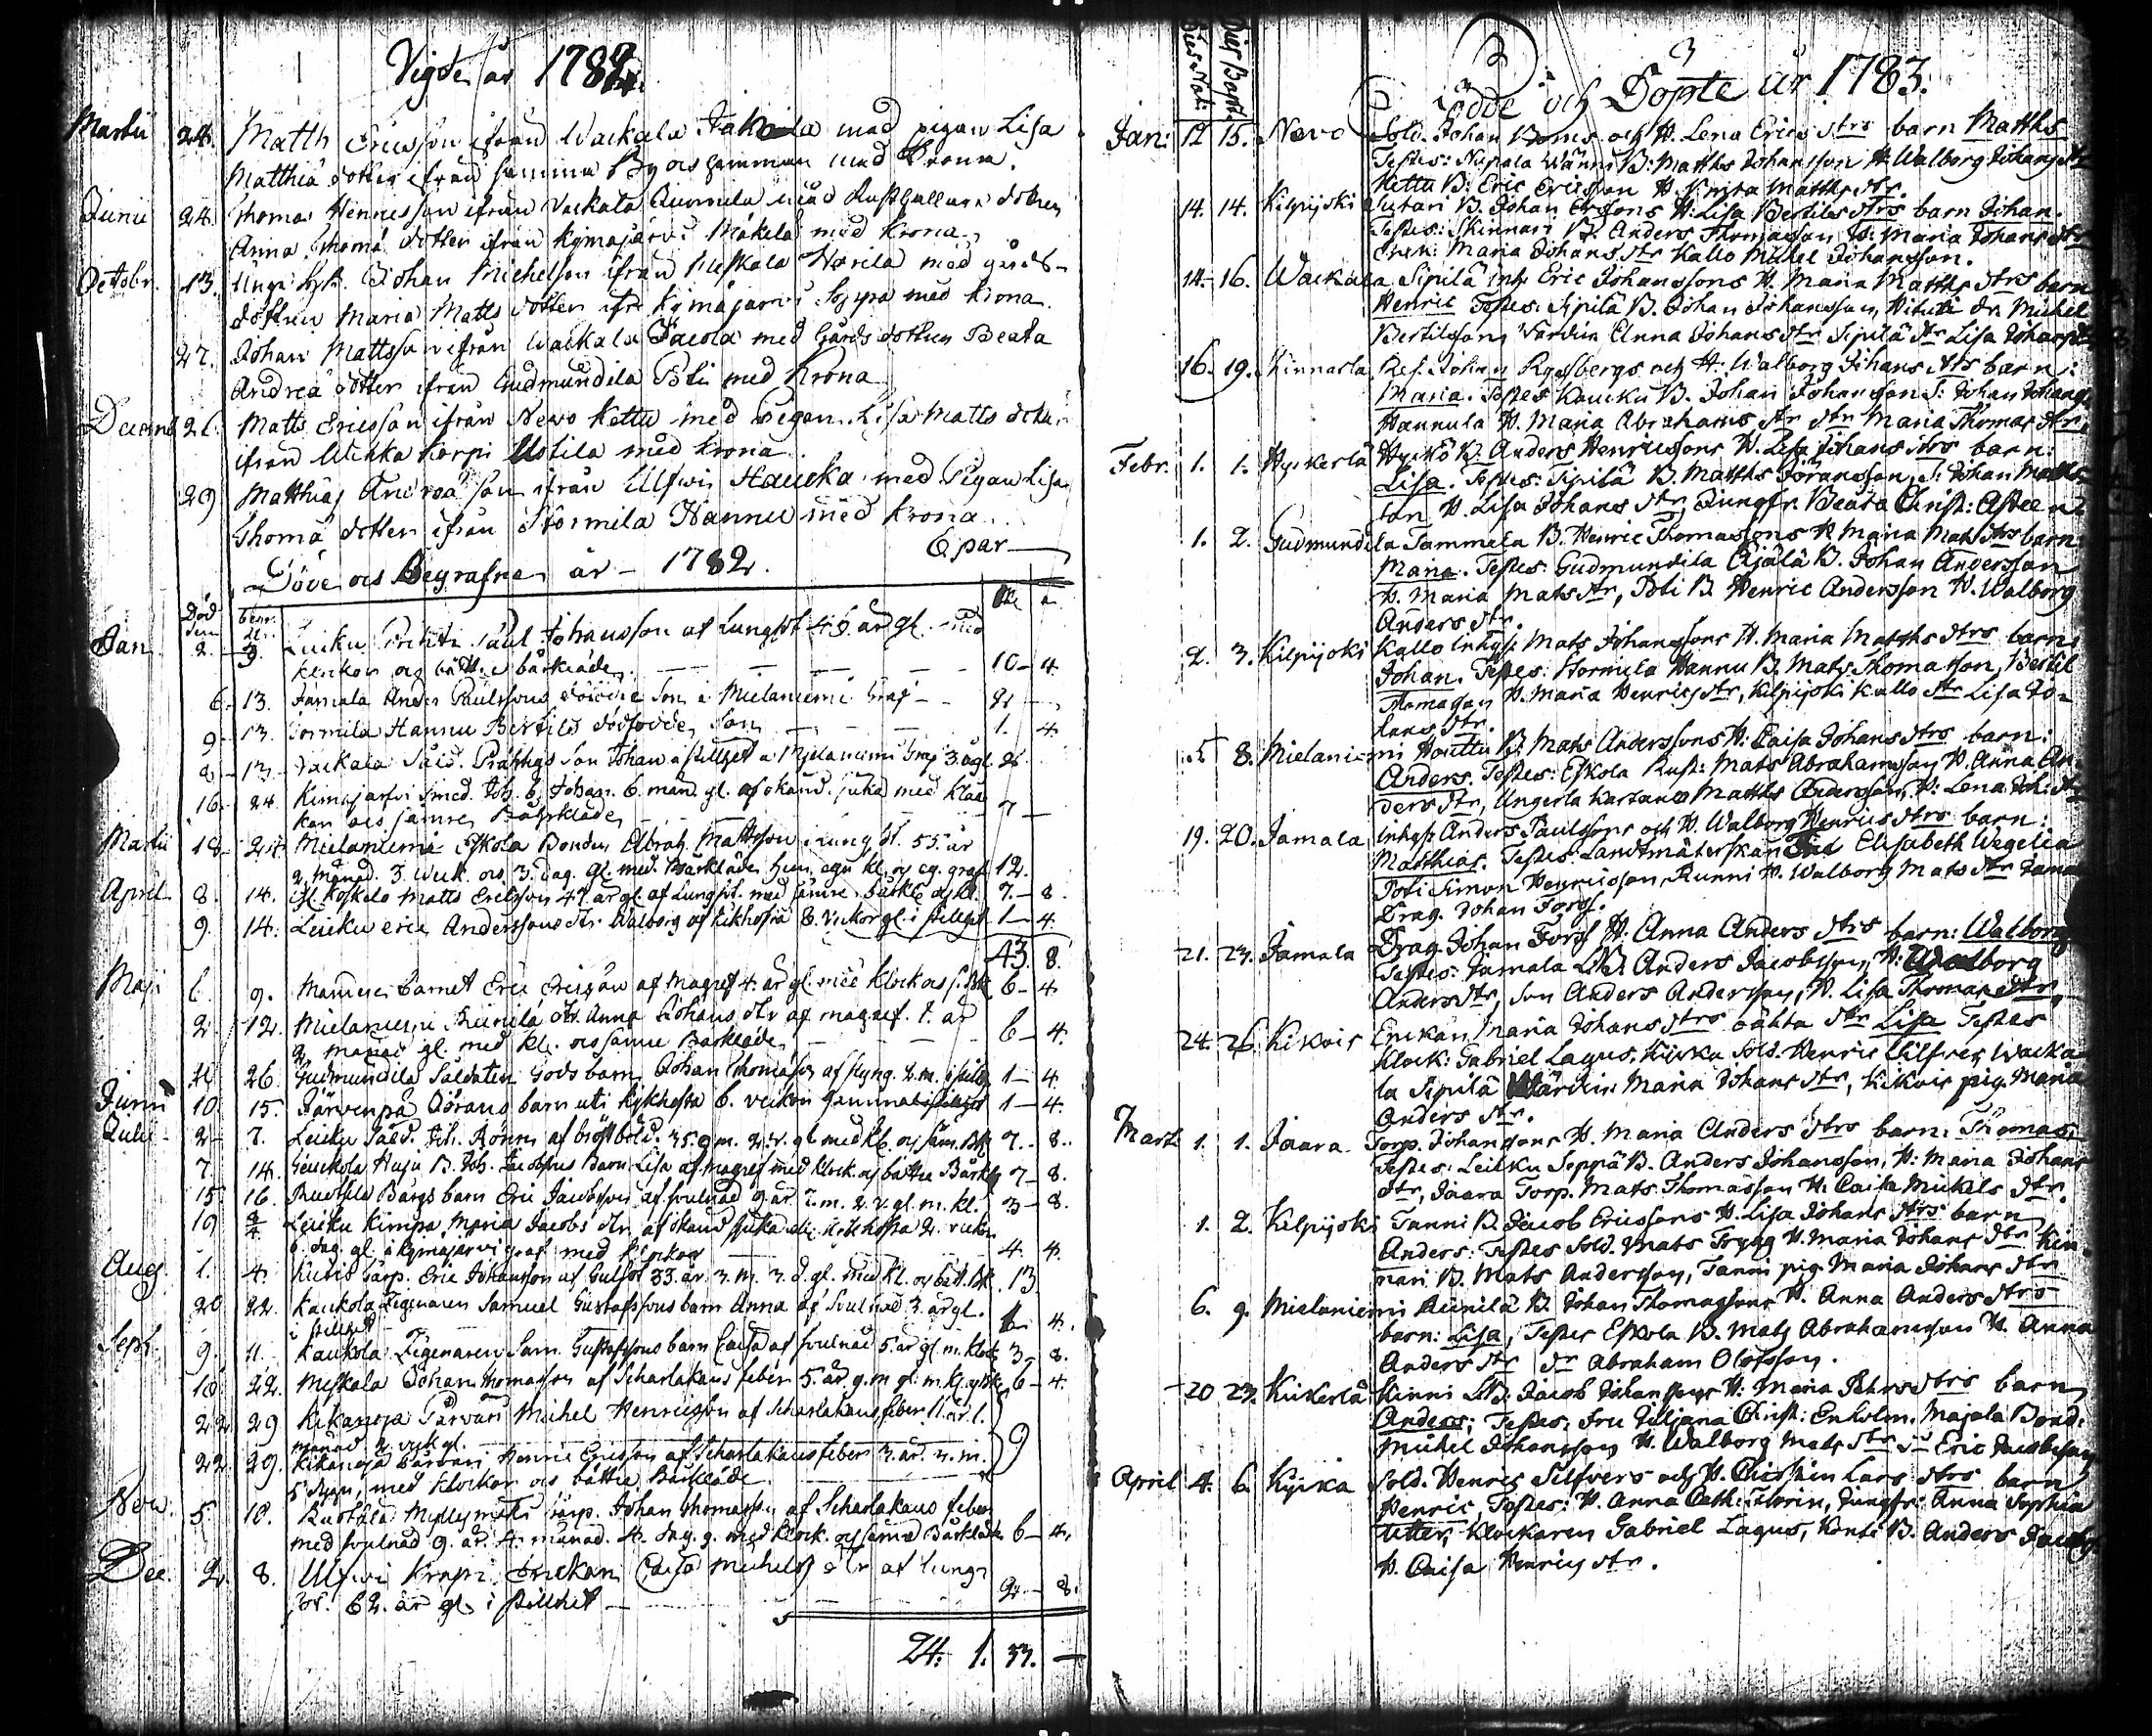 Vigde år 1782.
Martii 24. Matth Ericsson ifrån Wackala Jakola med pigan Lisa
Matthiä dotter ifrån samma By ocs samman med Krona.
Junii 24. Thomas Henricsson ifrån Vackala med dottren
Anna Thomä dotter ifrån Kymäjärvi Mäkelä med Krona
Octobr. 13. Unga Johan Michelson ifrån Meskala Harila med gårds-
dottren Maria Matts dotter ifr. Kymäjärvi Soppa med Krona.
27. Johan Mattsson ifrån Wackala Jacola med Gårds dottren Beata
Andreä dotter ifrån Gudmundila Poti med Krona
Decemb 26. Matts Ericsson ifrån Newo Kettu med Pigan Lisa Matts dotter
ifrån Uskila med Krona.
29 Matthias Andreä son ifrån Ulfwi Haucka med Pigan Lisa
Thomä dotter ifrån Stormila Hannu med Krona.
6 par
Döde ocs Begrafne år - 1782.
Död den
Jan. 2. 9. Leuku Paul Johansson af Lungsot 45 år gl. med
klockor og bättre bårkläde. 10 - 4.
6. 13. Jamala Anders Paulssons son i Mielaniemi Graf
9. 13. Tormila Hannu Bertils dödfödde Son 1. 4
8 - 13. Vackala Sold. son Johan i stillhet i Mielaniemi Graf 3 å gl.
16. 24. Kimajarfvi Smed. Joh. b. Johan. 6. mån. gl. af okänd. sjukd. med klåc
kor ocs sämre Bårkläde 7 -
Martii 18 24 Mielaniemi Eskola Bonden Abrah. Mattsson i Lungsot. 55. år
2 månad. 3. week. ocs 3. dag. gl. med Bårkläde, egn kl. og eg. graf 12.
April. 8. 14. Koskelo Matts Ericsson 47. år gl. af Lungsot. med sämre Bårkl. og kl. 7. - 8.
9. 14. Leuku Eric Anderssons dtr Walborg af Kikhosta 8. veckor gl. i stillhet 1 - 4.
43. 8.
Maji 6. 9. barnet Eric Ericson af Magref 4. år gl. med klock ocs s. Bkl 6 - 4
2. 12. Mielaniemi Reunilä dtr. Anna Johans dtr af magref. 1. år
2 månad gl. med kl. ocs sämre Barkläde 6 - 4.
26 26. Gudmundila Saldaten Gods barn Johan Thomason 2. m. i stillh. 1 - 4.
Junii 10 15. Järvenpä Görans barn uti Kikhosta 6. veckor gammal i stillhet 1 - 4.
Julii 2 7. Leuku Sold. Joh. Rönn af bröstböld. 35. 9 m. 2. v. gl med kl. og säm. Bkl 7. - 8.
7 14. Geuckola Huju B. Joh. Jacobssons Barn Lisa af magref med klock. og bättre Bårkl 7 - 8.
15 16. Bargs barn Eric Jacobsson af svulnad 9. år 7. m. 2. v. gl. m. kl. 3 - 8.
19 Leuku Kimpa Maria Jacobs dtr af okänd sjukd. Kikhosta 2. vickor
6. dag. gl. i Kymäjärvi graf med klockor 4. 4.
Aug. 1. 4. Kuris Torp. Eric Johansson af Gulsot 33. år. 3. m. 3. d. gl. med kl. og bätt. Bk. 13
20 22. Kaukola Zigenaren Samuel Gustafssons barn Anna af Svulnad 3. år gl.
i stillhet 1. 4.
Sept. 9. 11. Kaukola Zigenaren Sam. Gustafssons barn Caisa af svulnad 5. år gl. m. klock 3 - 8.
18. 22. Meskala Johan Thomasson af Scharlakans feber 5. år. 9. m gl. m. kl. og Bkl 6 - 4.
22 29 Kikanoja Torvari Michel Henricsson af Scharlakans feber 11. år 1.
månad 2 veck gl.
22. 29. Kikanoja Torvari Henric Ericsson af Scharlakansfeber 3. år. 4. m.
5 dygn, med klockor ocs bättre Bårkläde 9
Nov. 5. 10. Rustala Myllymäki Torp. Johan Thomasson af Scharlakans feber
med svulnad 9. år. 4. månad. 4. dag. g. med klock. og sämre Bårkläde 6 - 4.
Dec. 2. 8. Ulfwi Krapi Enckan Caisa Michels dtr af lung-
sot. 62. år gl. i stillhet 2. - 8.
24. 1. 33. -
3
Dies Nat: Dies Bapt.
Födde och Döpte år 1783.
Jan: 12 15. Nevo Sold. Johan Broms och H. Lena Erics dtrs barn Matths
Testes: Nupala B: Matths Johansson H. Walborg Johans dtr
Kettu B: Eric Ericsson H. Krista Matths dtr.
14. 14. Kilpijoki Autari B. Johan Ersons H: Lisa Bertils dtrs barn Johan.
Testes: Skinnari B. Anders Thomasson H: Maria Johans dtr
Enck: Maria Johans dtr Kallo Michel Johansson.
14. 16. Wackala Sipilä inh. Eric Johanssons H. Maria Matths dtrs barn
Henric Testes: Sipilä B. Johan Johansson, dr. Michel
Bertilsson Värdin Anna Johans dtr Sipilä dtr Lisa Johans dtr
16. 19. Kinnarla Ref. Johan Rysbergs och H. Walborg Johans dtrs barn:
Maria. Testes Kaucku B. Johan Johansson S: Johan Johanss.
Hannula H. Maria Abrahams dtr dtr Maria Thomas dtr.
Febr. 1. 1. Hyckerlä Hyckö B. Anders Henricssons H. Lisa Johans dtrs barn:
Lisa. Testes: Sipilä B. Matths Göransson, S: Johan Matths-
son H. Lisa Johans dtr, Jungfr. Beata Christ:
1. 2. Gudmundila Tammela B. Henric Thomassons H Maria Mats dtrs barn
Maria. Testes: Gudmundila Ajälä B. Johan Andersson
H. Maria Mats dtr, Poti B. Henric Andersson H. Walborg
Anders dtr.
2. 3. Kilpijoki Kallo Inhys: Mats Johanssons H. Maria Matths dtrs barn
Johan. Testes: Stormila Hannu B. Mats Thomasson, Bertil
Thomasson H. Maria Henrics dtr, Kilpijoki Kallo dtr Lisa Jo-
hans dtr.
5. 8. Mielaniemi Houttu B: Mats Anderssons H: Caisa Johans dtrs barn:
Anders. Testes: Eskola Rust: Mats Abrahamsson H. Anna An-
ders dtr, Ungerla Matths Andersson, H: Lena Joh: dtr
19. 20. Jamala Inhys: Anders Paulssons och H. Walborg Henrics dtrs barn:
Matthias. Testes Landtmäterskan Elisabeth Wegelia
Poti Simon Henricsson, Runni H. Walborg Mats dtr Jama
Drag. Johan Forss.
21. 23. Jamala Drag. Johan Forss H. Anna Anders dtrs barn: Walborg
Testes: Jamala LB: Anders Jacobsson, H: Walborg
Anders dtr, Son Anders Andersson, H. Lisa Thomas dtr,
24. 26. Kikois Enckan Maria Johans dtrs oäkta dtr Lisa Testes
Klock: Gabriel Lagus, Kyrka Sold. Henric Silfver, Wacka
la Sipilä Wärdin Maria Johans dtr, Kikois pig. Maria
Anders dtr.
Mart: 1. 1. Jaara Torp. Johanssons H. Maria Anders dtrs barn: Thomas.
Testes: Leuku Seppä B. Anders Johansson, H: Maria Johans
dtr, Jaara Torp. Mats Thomasson H. Caisa Mickels dtr.
1. 2. Kilpijoki Tanni B. Jacob Ericssons H. Lisa Johans dtrs barn
Anders: Testes Sold. Mats Trygg H. Maria Johans dtr Kin-
nari B. Mats Andersson, Tanni pig. Maria Johans dtr
6. 9. Mielaniemi Reunilä B. Johan Thomassons H. Anna Anders dtrs
barn: Lisa, Testes Eskola B. Mats Abrahamsson H. Anna
Anders dtr dr Abraham Olofsson.
20 23. Kiikerlä Kinni LB: Jacob Johanssons H: Maria Pehrs dtrs barn
Anders; Testes, Fru Juljana Christ: Enholm, Majala Bond:
Michel Johansson H. Walborg Mats dtr Eric Jacobsson
April 4. 6. Kyrka Sold. Henric Silfvers och H. Christin Lars dtrs barn
Henric, Testes: H. Anna Cath: Florin, Jungfr. Anna Sophia
Utter, Klockaren Gabriel Lagus, Konti B. Anders Jacobs.
H. Caisa Henrics dtr.